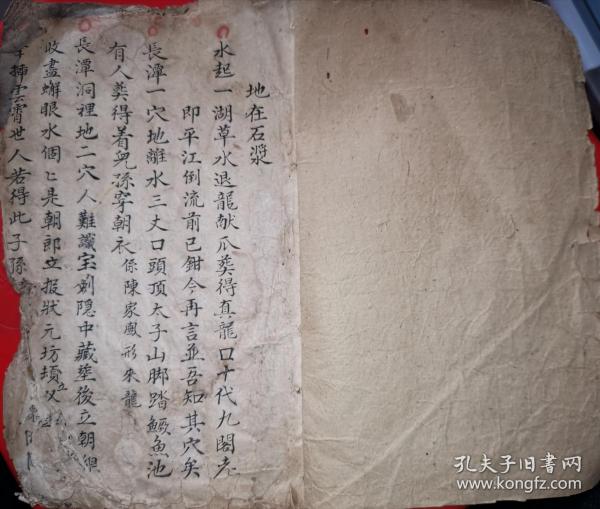 地在石漿
水起一湖草水退龍献爪葬得真龍口十代九閣老
即平江倒流前已鉗今再言並吾知其穴矣
長潭一穴地離水三丈口頭頂太子山脚踏鱖魚池
有人葬得着兒孫穿朝衣係陳家鳳形來龍
長潭洞裡地二穴人難識宝劍隱中藏塋後立朝
收盡蠏眼水個〻是朝郎立报狀元坊墳
挿雲霄世人若得此子孫
孔夫子旧书网
www.kongfz.com